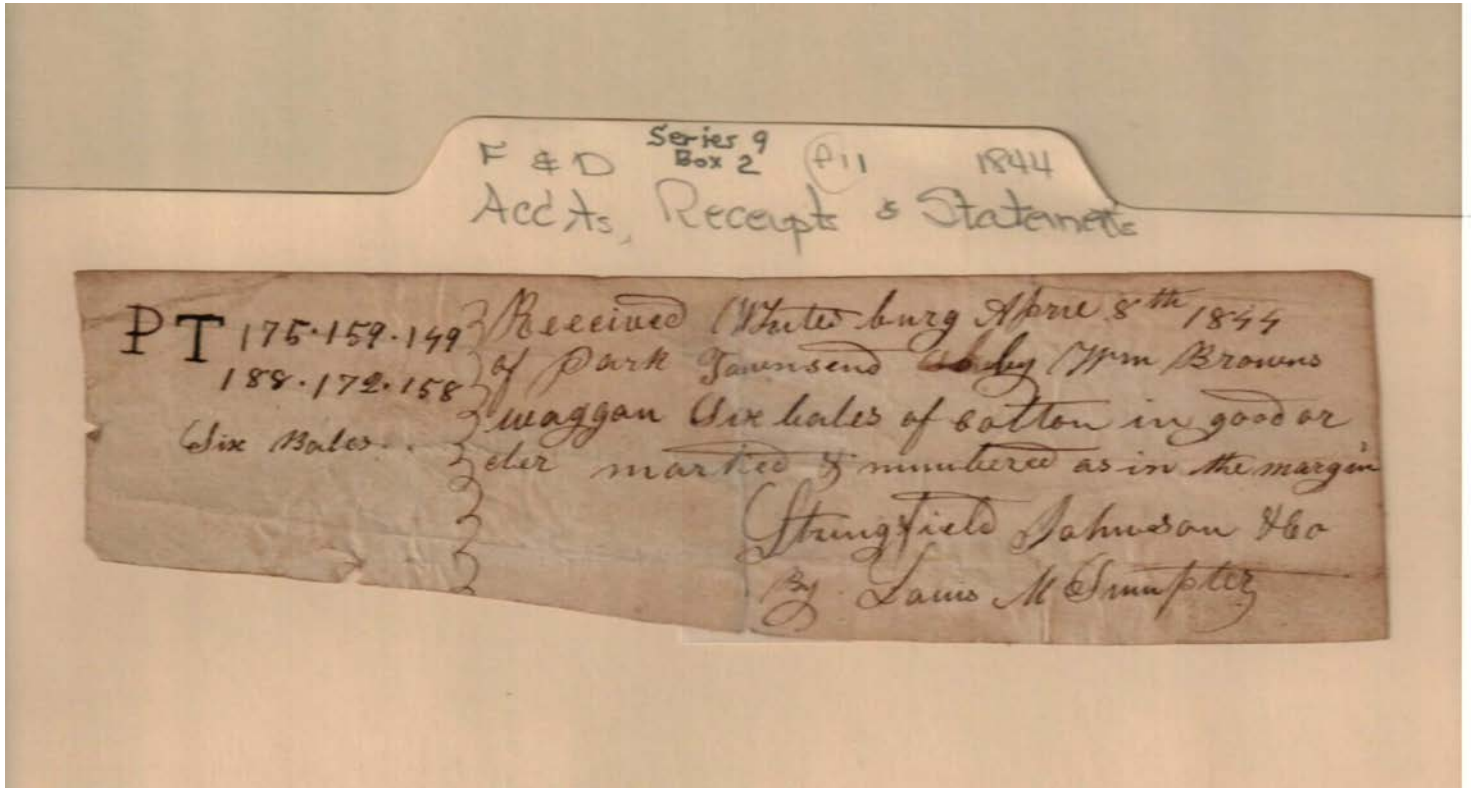 Series 9
F & D Box 2 P11 1844
Acc'ts, Receipts & Statements
PT 175·159·149 Received Whitesburg April 8th 1844
188·172·158 of Park Townsend by Wm Browns
waggon Six bales of cotton in good or
Six Bales.. der marked & numbered as in the margin
Stringfield Johnson & Co
By Louis M Sumpter